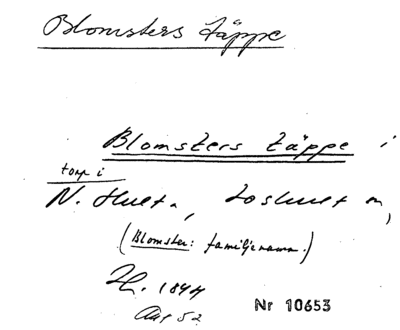 Blomsters täppe
Blomsters täppe i
torp i
N. Hult , Loshult sn,
(Blomster: familjenamn.)
H. 1844
Aug 52
Nr 10653